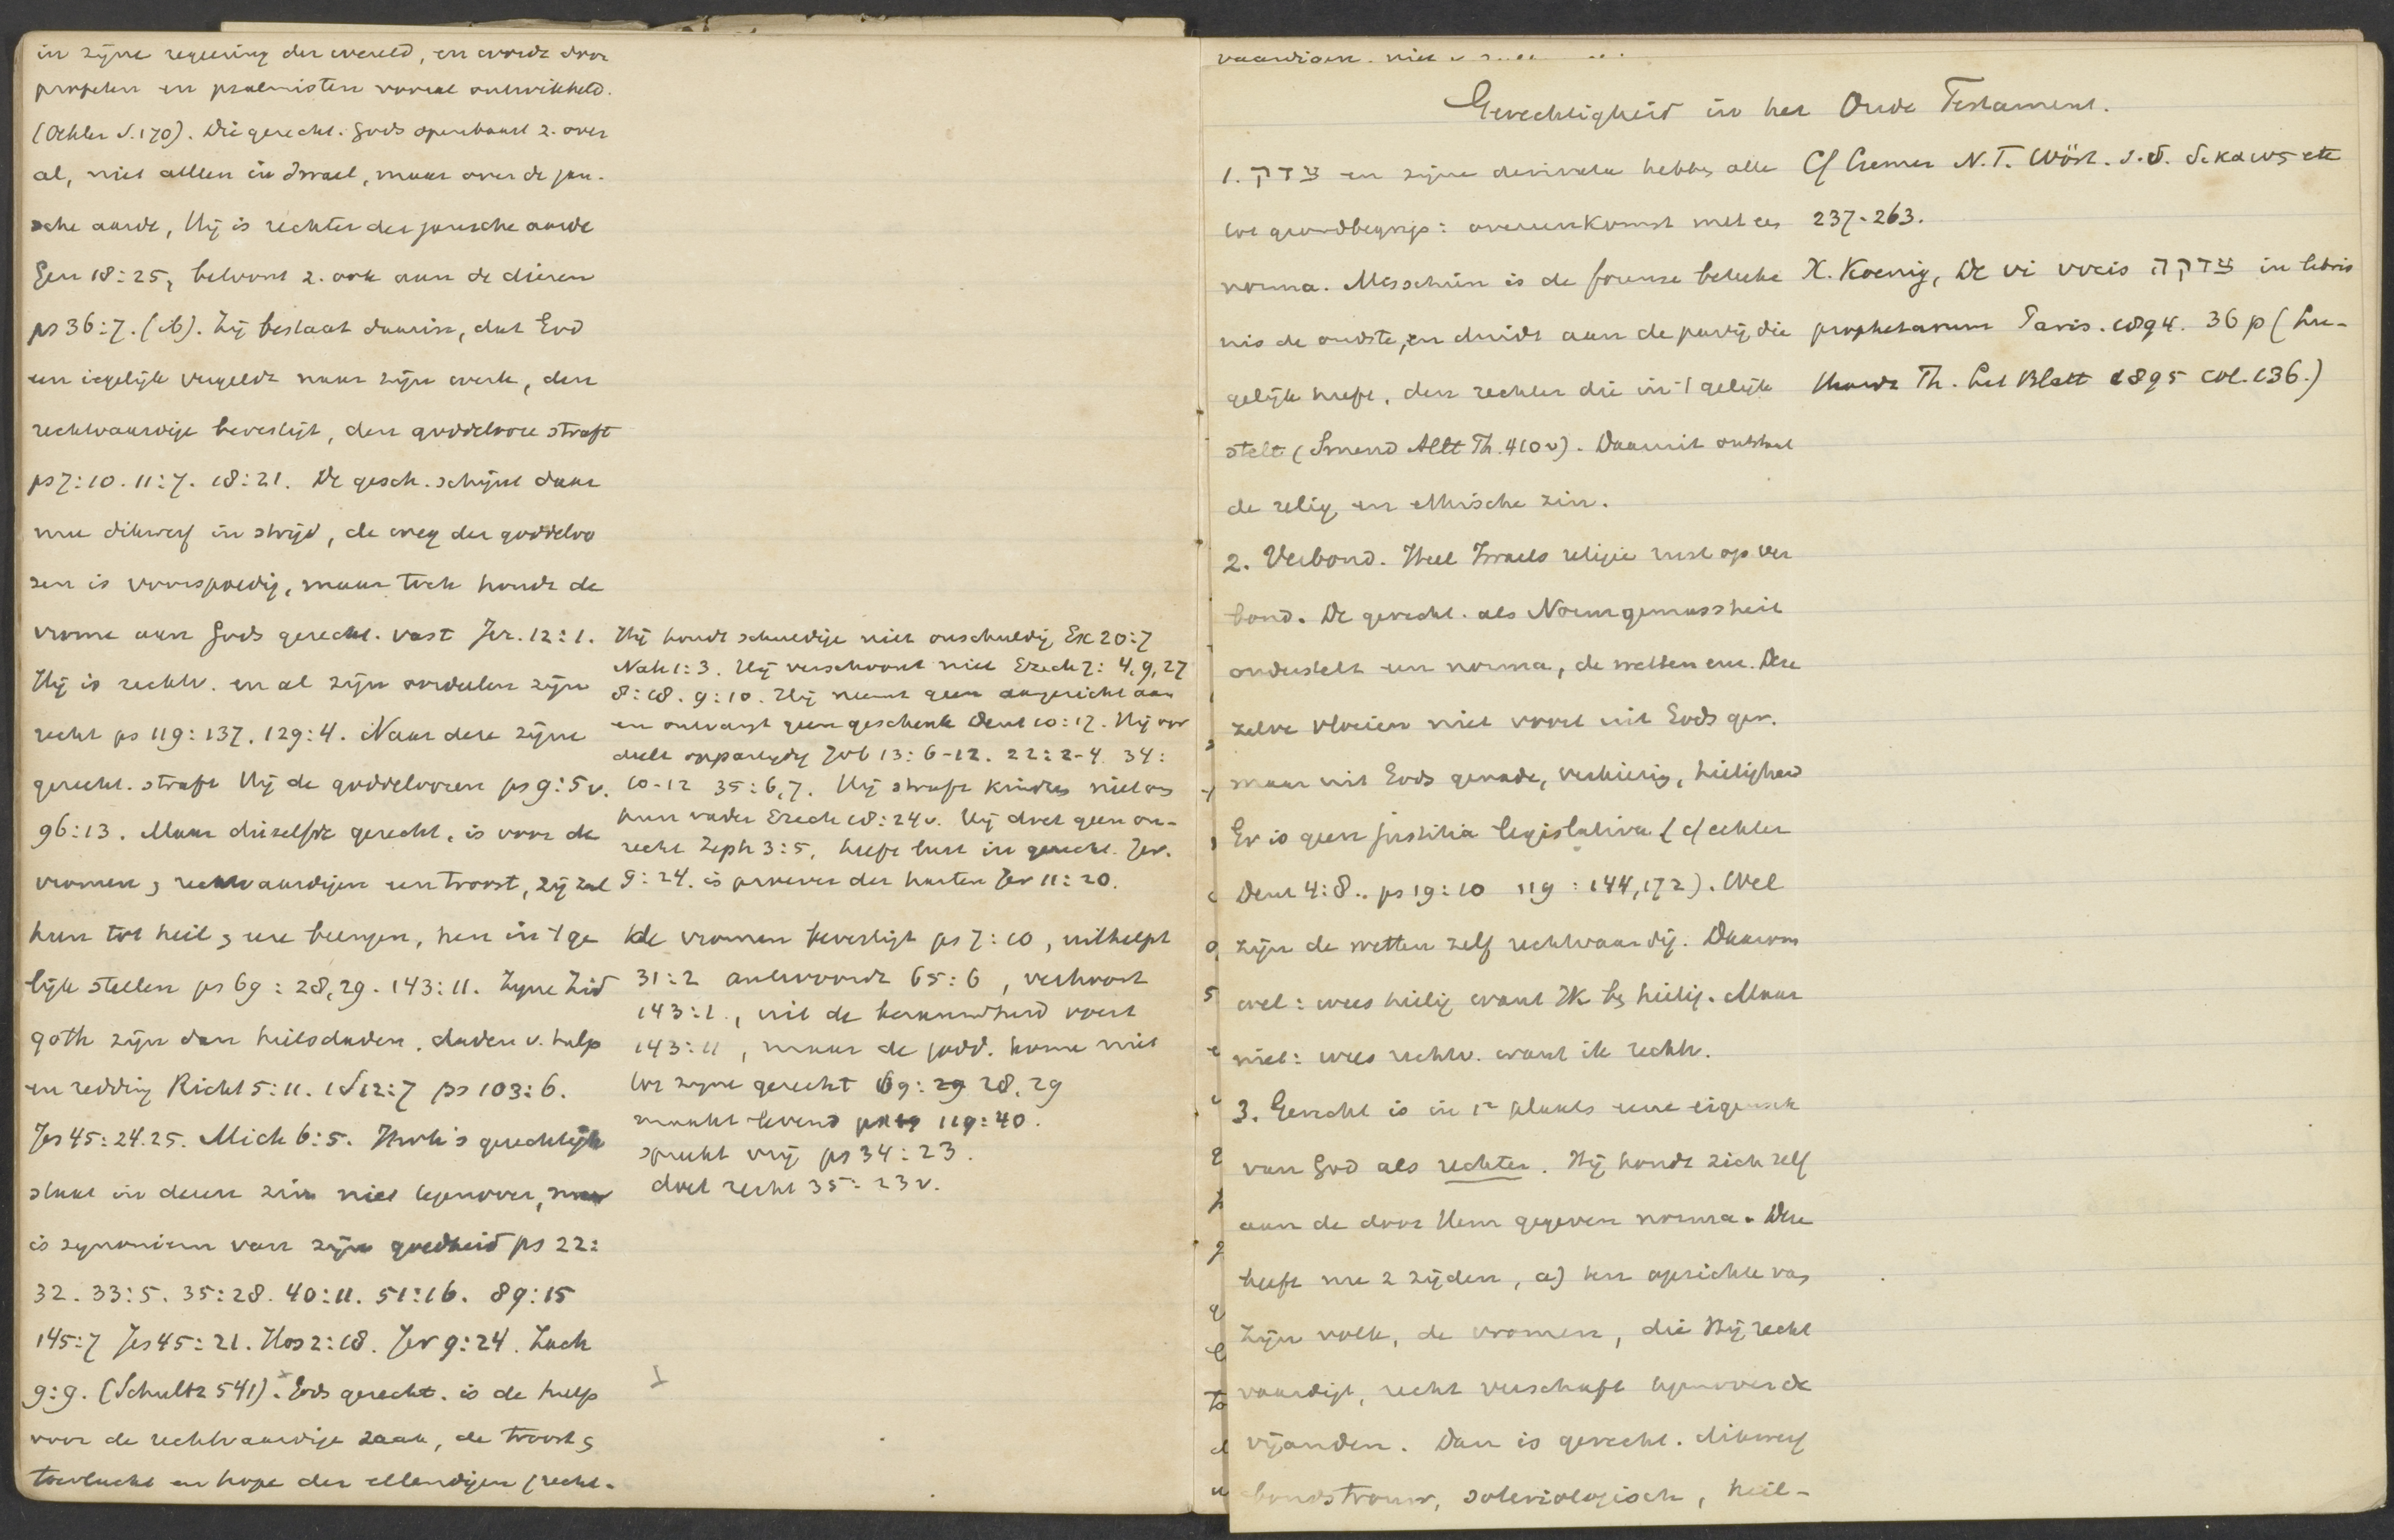 in zijne regeering der wereld, en wordt door
profeten en psalmisten vooral ontwikkeld.
(Oehler S.170). Die gerecht. Gods openbaart z. over
al, niet alleen in Israel, maar over de gan-
sche aarde, Hij is rechter der gansche aarde
Gen 18:25, betoont z. ook aan de dieren
ps 36:7. (ib). Zij bestaat daarin, dat God
een iegelijk vergeldt naar zijn werk, den
rechtvaardige bevestigt, den goddelooze straft
ps 7:10. 11:7. 18:21. De gesch. schijnt daar
mee dikwerf in strijd, de weg der goddeloo
zen is voorspoedig, maar toch houdt de
vrome aan Gods gerecht. vast Jer. 12:1.
Hij is rechtv. en al zijn oordeelen zijn
recht ps 119:137. 129:4. Naar deze zijne
gerecht. straft Hij de goddeloozen ps 9:5v.
96:13. Maar diezelfde gerecht. is voor de
vromen, rechtvaardigen een troost, zij zal
hun tot heil, eere brengen, hen in 't ge
lijk stellen ps 69:28,29. 143:11. Zijne Zid
qoth zijn dan heilsdaden, daden v. hulp
en redding Richt 5:11. 1S12:7 ps 103:6.
Jes 45:24.25. Mich 6:5. Jhvh's gerechtigh
staat in dezen zin niet tegenover, maar
is synoniem van zijn goedheid ps 22:
32. 33:5. 35:28. 40:11. 51:16. 89:15
145:7 Jes 45:21. Hos 2:18. Jer 9:24. Zach
9:9. (Schultz 541). Gods gerecht. is de hulp
voor de rechtvaardige zaak, de troost,
toevlucht en hope der ellendigen (recht-
Hij houdt schuldige niet onschuldig Ex 20:7
Nah 1:3. Hij verschoont niet Ezech 7:4,9,27
8:18. 9:10. Hij neemt geen aangezicht aan
en ontvangt geen geschenk Deut 10:17. Hij oor
deelt onpartijdig Job 13:6-12. 22:2-4. 34:
10-12 35:6,7. Hij straft kinders niet om
hun vader Ezech 18:24v. Hij doet geen on-
recht Zeph 3:5, heeft lust in gerecht. Jer.
9:24. is proever der harten Jer 11:20.
de vromen bevestigt ps 7:10, uithelpt
31:2 antwoordt 65:6, verhoort
143:1, uit de benauwdheid voert
143:11, maar de godd. komen niet
tot zijne gerecht 69:29 28,29
maakt levend 119:40.
spreekt vrij ps 34:23.
doet recht 35:23v.
vaardigen. niet
Gerechtigheid in het Oude Testament.
1. צדק en zijne derivata hebben alle
tot grondbegrip: overeenkomst met een
norma. Misschien is de forense beteeke
nis de oudste, en duidt aan de partij die
gelijk heeft, den rechter die in 't gelijk
stelt (Smend Altt Th. 410v). Daaruit ontstaat
de relig. en ethische zin.
Cf Cremer N.T. Wört. s.v. δικαιος etc
237-263.
X. Koenig, De vi vocis צדקה in libris
prophetarum Paris. 1894. 36 p (Lie-
Th. Lit Blatt 1895 col. 136.)
2. Verbond. Heel Israels religie rust op ver
bond. De gerecht. als Normgemässheit
onderstelt een norma, de wetten enz. Deze
zelve vloeien niet voort uit Gods ger.
maar uit Gods genade, verkiezing, heiligheid
Er is geen justitia legislativa (cf echter
Deut 4:8.. ps 19:10 119:144,172). Wel
zijn de wetten zelf rechtvaardig. Daarom
wel: wees heilig want Ik ben heilig. Maar
niet: wees rechtv. want ik rechtv.
3. Gerecht is in 1e plaats eene eigensch
van God als rechter. Hij houdt zich zelf
aan de door Hem gegeven norma. Deze
heeft nu 2 zijden, a) ten opzichte van
Zijn volk, de vromen, die Hij recht
vaardigt, recht verschaft tegenover de
vijanden. Dan is gerecht. dikwerf
bondstrouw, soteriologisch, heil-